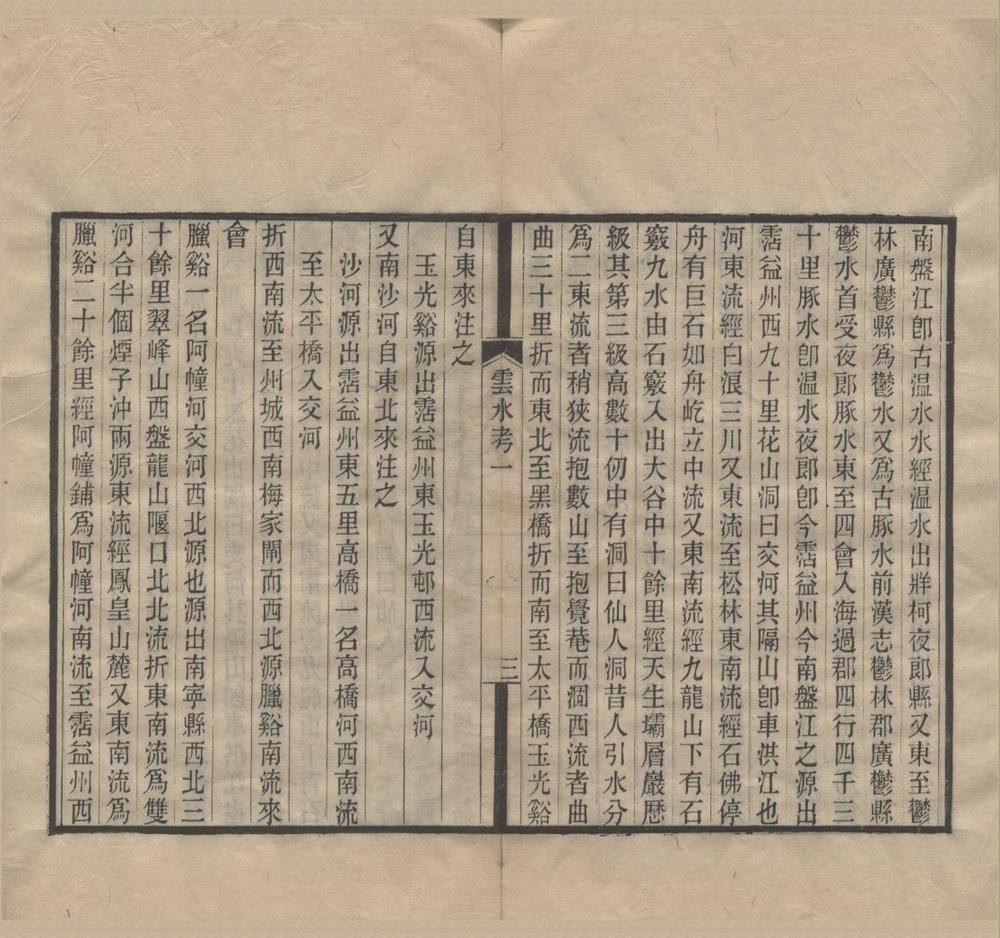 南盤江卽古温水水經温水出牂柯夜郎縣又東至鬱
林廣鬱縣爲鬱水又爲古豚水前漢志鬱林郡廣鬱縣
鬱水首受夜郎豚水東至四會入海過郡四行四千三
十里豚水卽温水夜郎卽今霑益州今南盤江之源出
霑益州西九十里花山洞曰交河其隔山卽車洪江也
河東流經白浪三川又東流至松林東南流經石佛停
舟有巨石如舟屹立中流又東南流經九龍山下有石
竅九水由石竅入出大谷中十餘里經天生壩層巖歴
級其第三級高數十仞中有洞曰仙人洞昔人引水分
爲二東流者稍狹流抱數山至抱覺菴而涸西流者曲
曲三十里折而東北至黑橋折而南至太平橋玉光谿
雲水考一
三
自東來注之
玉光谿源出霑益州東玉光邨西流入交河
又南沙河自東北來注之
沙河源出霑益州東五里高橋一名高橋河西南流
至太平橋入交河
折西南流至州城西南梅家閘而西北源臘谿南流來
會
臘谿一名阿幢河交河西北源也源出南寧縣西北三
十餘里翠峰山西盤龍山堰口北北流折東南流爲雙
河合半個煙子沖兩源東流經鳳皇山麓又東南流爲
臘谿二十餘里經阿幢鋪爲阿幢河南流至霑益州西